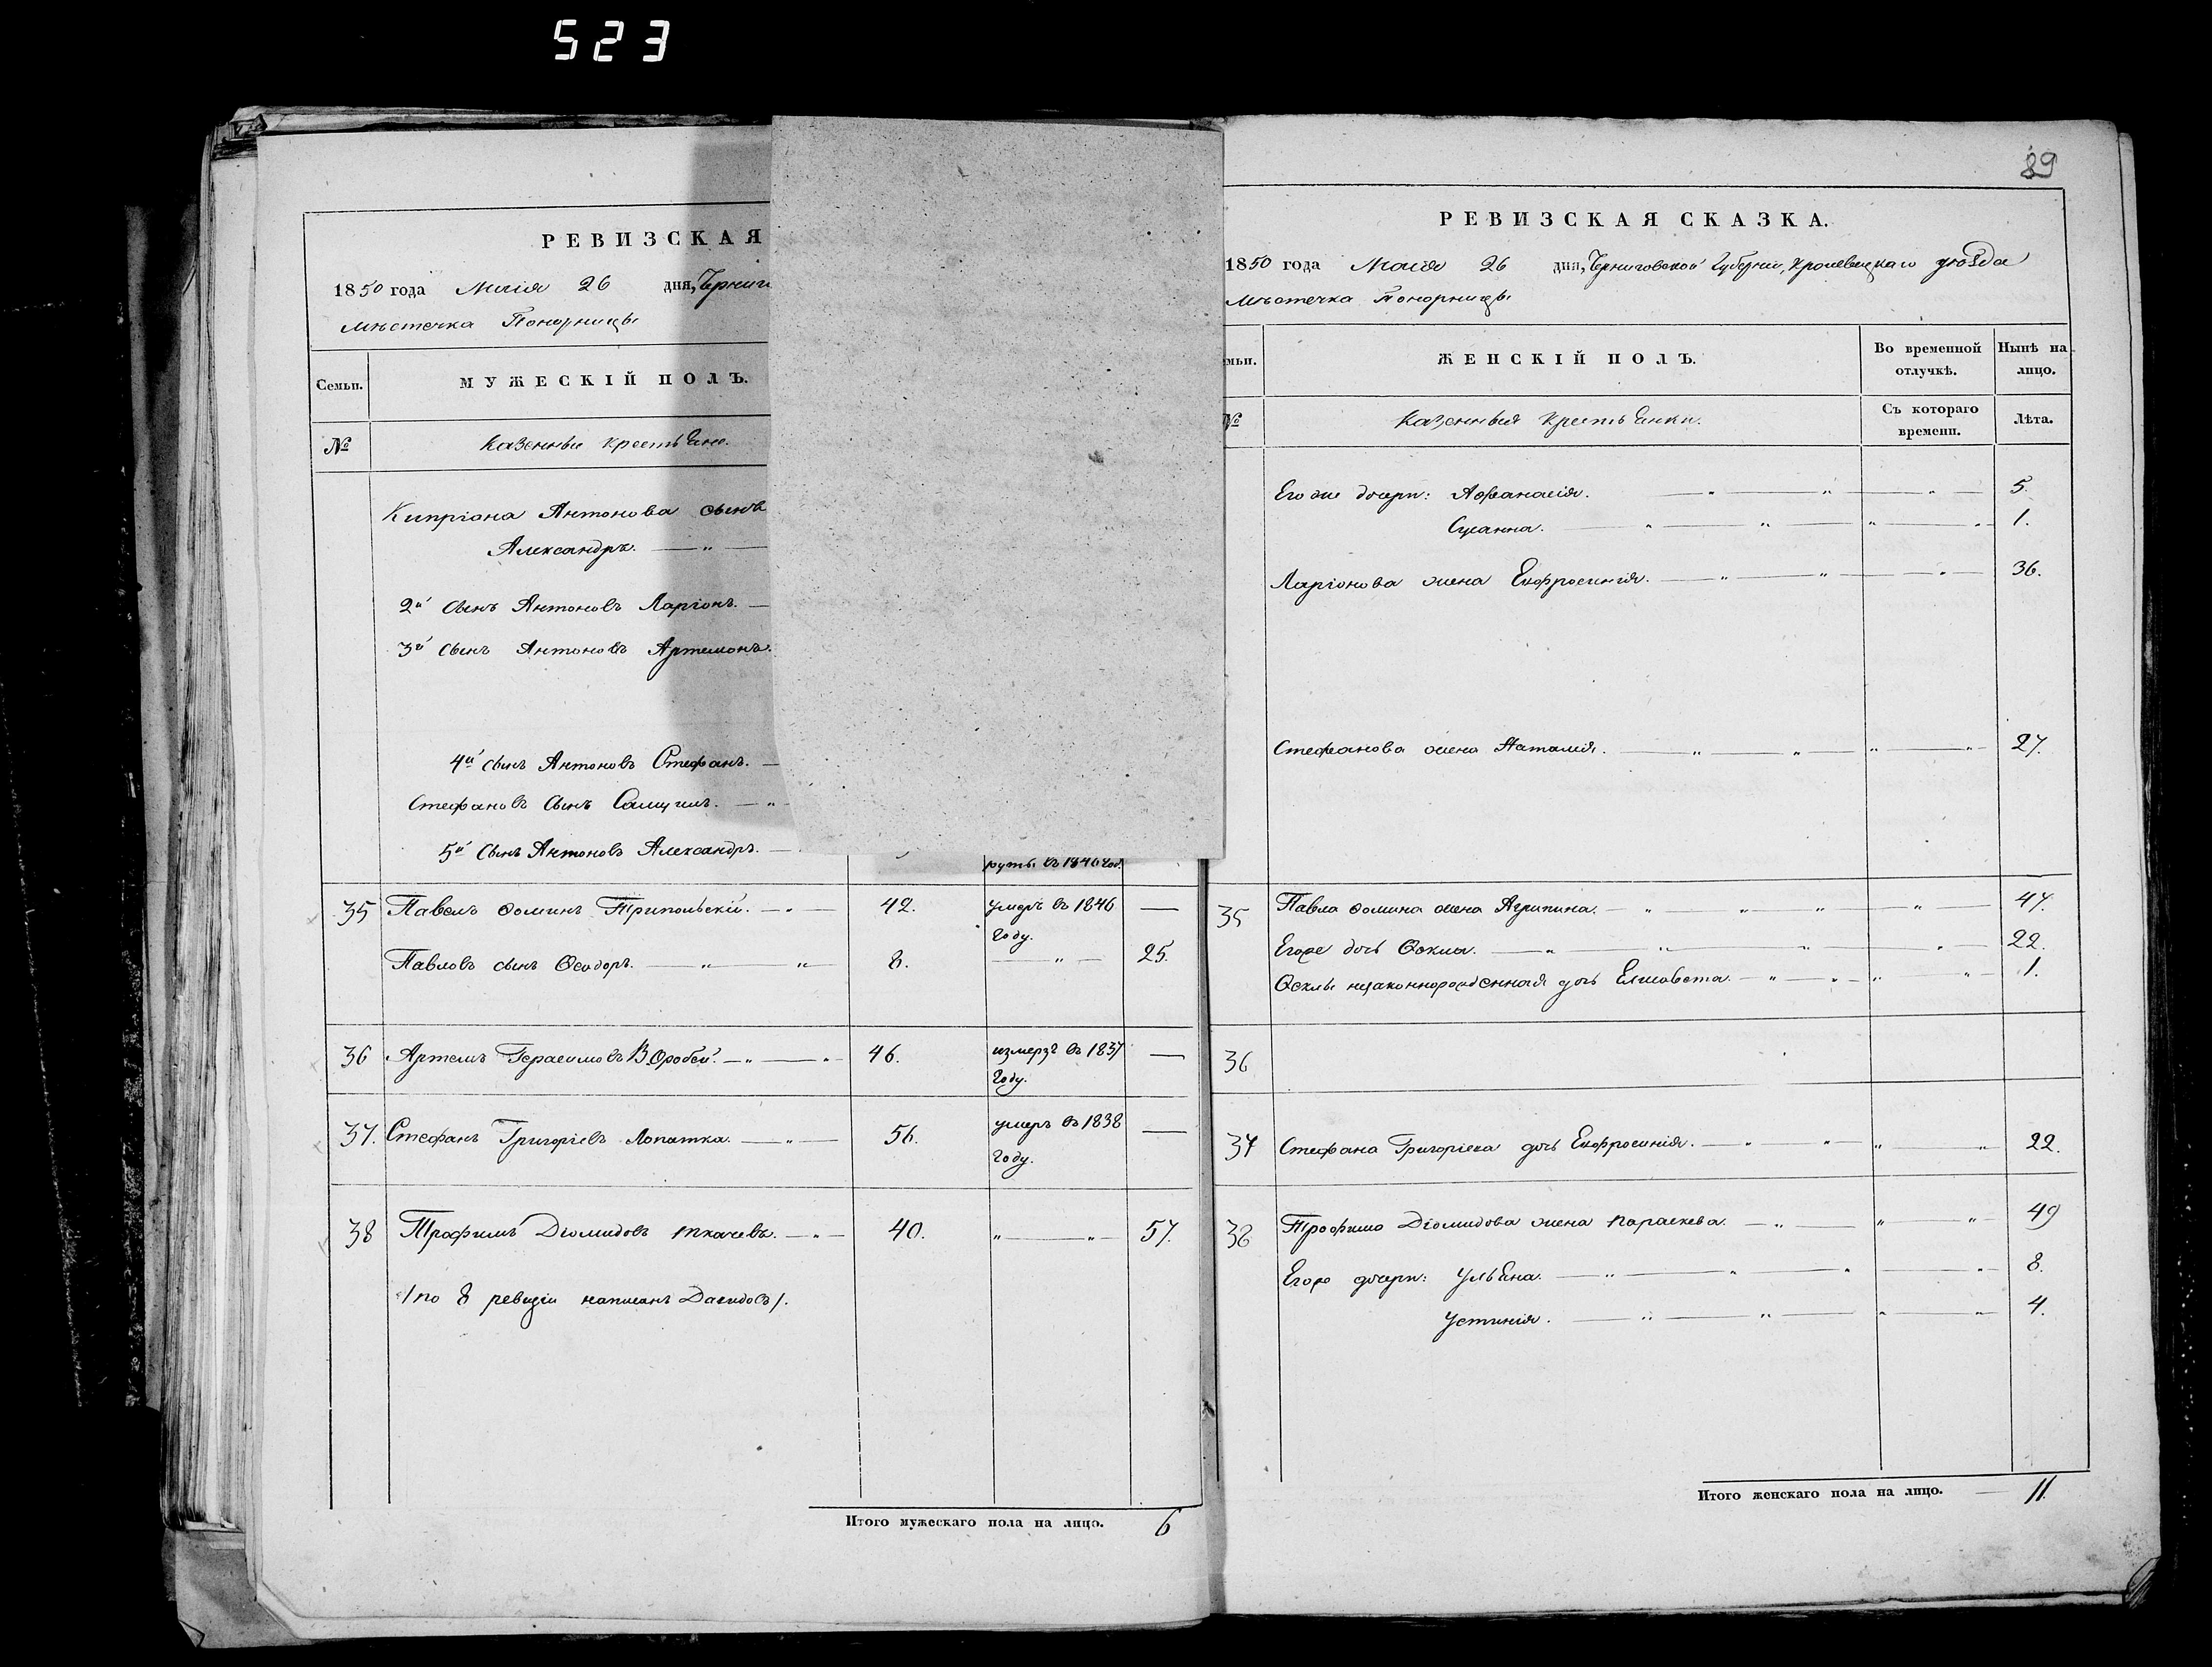 523
РЕВИЗСКАЯ
1850 года Маія 26 дня,
Мѣстечка Понорницы
Семьи. МУЖЕСКІЙ ПОЛЪ.
№ Казенные крестьяне.
Кипріана Антонова сынъ
Александръ. — „ —
2й сынъ Антоновъ Ларіонъ. —
3й сынъ Антоновъ Артемонъ.
4й сынъ Антоновъ Стефанъ. —
Стефановъ сынъ Самуилъ. — „
5й сынъ Антоновъ Александръ. —
въ 1846 год.
35 Павелъ Фоминъ Трипольскій. — „ 42. умеръ въ 1846 году. —
Павловъ сынъ Ѳеодоръ. — „ — „ — 8. — „ — 25.
36 Артемъ Герасимовъ Воробей. — „ — „ — 46. измерзъ въ 1837 году. —
37. Стефанъ Григоріевъ Лопатка. — „ — 56. умеръ въ 1838 году. —
38 Трофимъ Діомидовъ Ткачевъ. — „ — 40. „ — „ — 57.
/по 8 ревизіи написанъ Давидовъ/.
Итого мужескаго пола на лицо. 6
89
РЕВИЗСКАЯ СКАЗКА.
1850 года Маія 26 дня, Черниговской Губерніи, Кролевецкаго уѣзда
Мѣстечка Понорницы
ЖЕНСКІЙ ПОЛЪ. Во временной отлучкѣ. Нынѣ на лицо.
№ Казенныя крестьянки. Съ котораго времени. Лѣта.
Его же дочери: Афанасія. — „ — „ — „ — 5.
Сусанна. — „ — „ — „ — „ — 1.
Ларіонова жена Евфросинія. — „ — „ — „ — 36.
Стефанова жена Наталія. — „ — „ — „ — „ — 27.
35 Павла Фомина жена Агрипина. — „ — „ — „ — „ — 47.
Егоже дочь Ѳекла. — „ — „ — „ — „ — 22.
Ѳеклы незаконнорожденная дочь Елисавета. — „ — „ — „ — „ — 1.
36
37 Стефана Григоріева дочь Евфросинія. — „ — „ — „ — „ — 22.
38 Трофима Діомидова жена Параскева. — „ — „ — „ 49
Егоже дочери: Ульяна. — „ — „ — „ — „ — 8.
Устинія. — „ — „ — „ — „ — 4.
Итого женскаго пола на лицо. — 11.